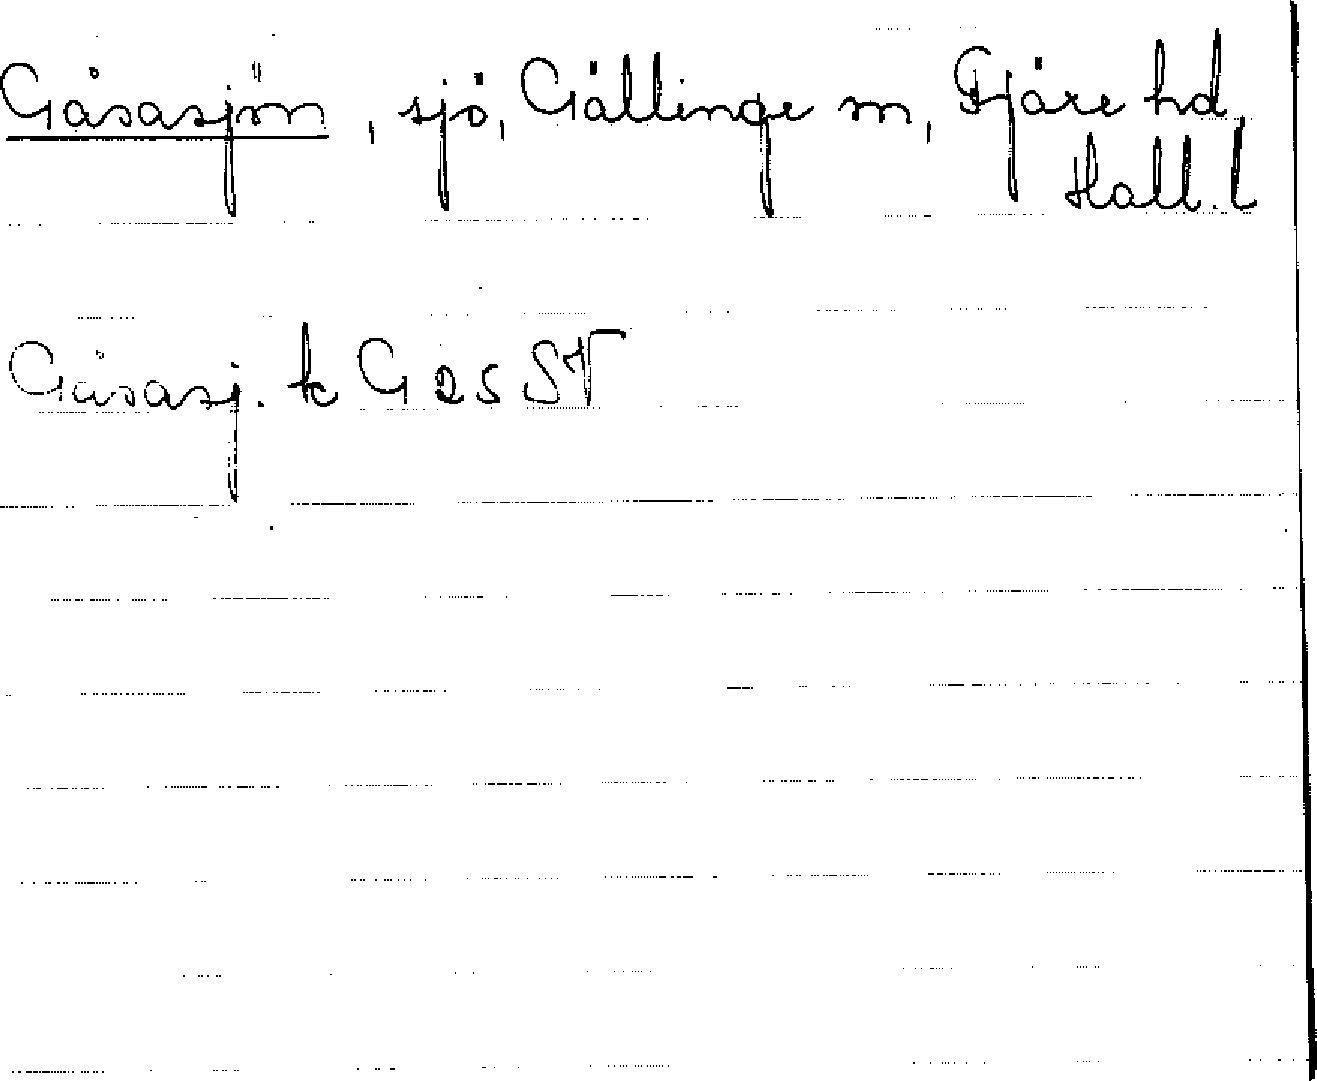 Gåsasjön, sjö, Gällinge sn, Fjäre hd
Hall. l
Gåsasj. k G 25 SV